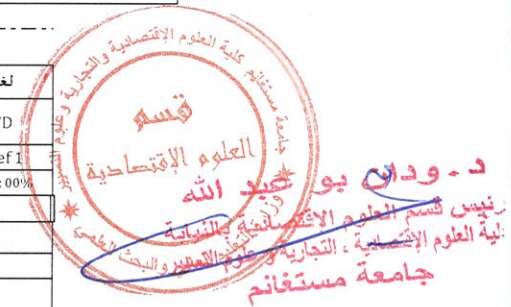 لغ
TD
ef 1
00%
جامعة مستغانم كلية العلوم الإقتصادية والتجارية وعلوم التسيير
قسم
العلوم الإقتصادية
وزارة التعليم العالي والبحث العلمي
د. ودان بو عبد الله
رئيس قسم العلوم الإقتصادية بالنيابة
كلية العلوم الإقتصادية ، التجارية وعلوم التسيير
جامعة مستغانم